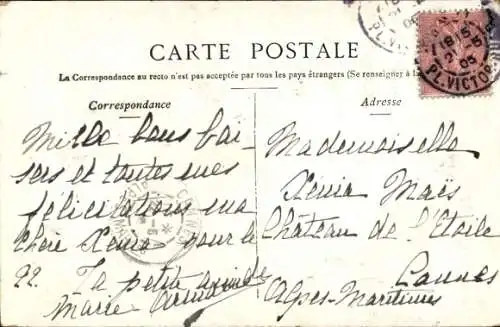 CARTE POSTALE
La Correspondance au recto n'est pas acceptée par tous les pays étrangers (Se renseigner à la
Correspondance
Adresse
Mille bons bai-
sers et toutes mes
félicitations ma
chère Xénia pour le
22. Ta petite amie
Marie
Mademoiselle
Xénia Maïs
Château de l'Etoile
Cannes
Alpes-Maritimes
PL. VICTOR